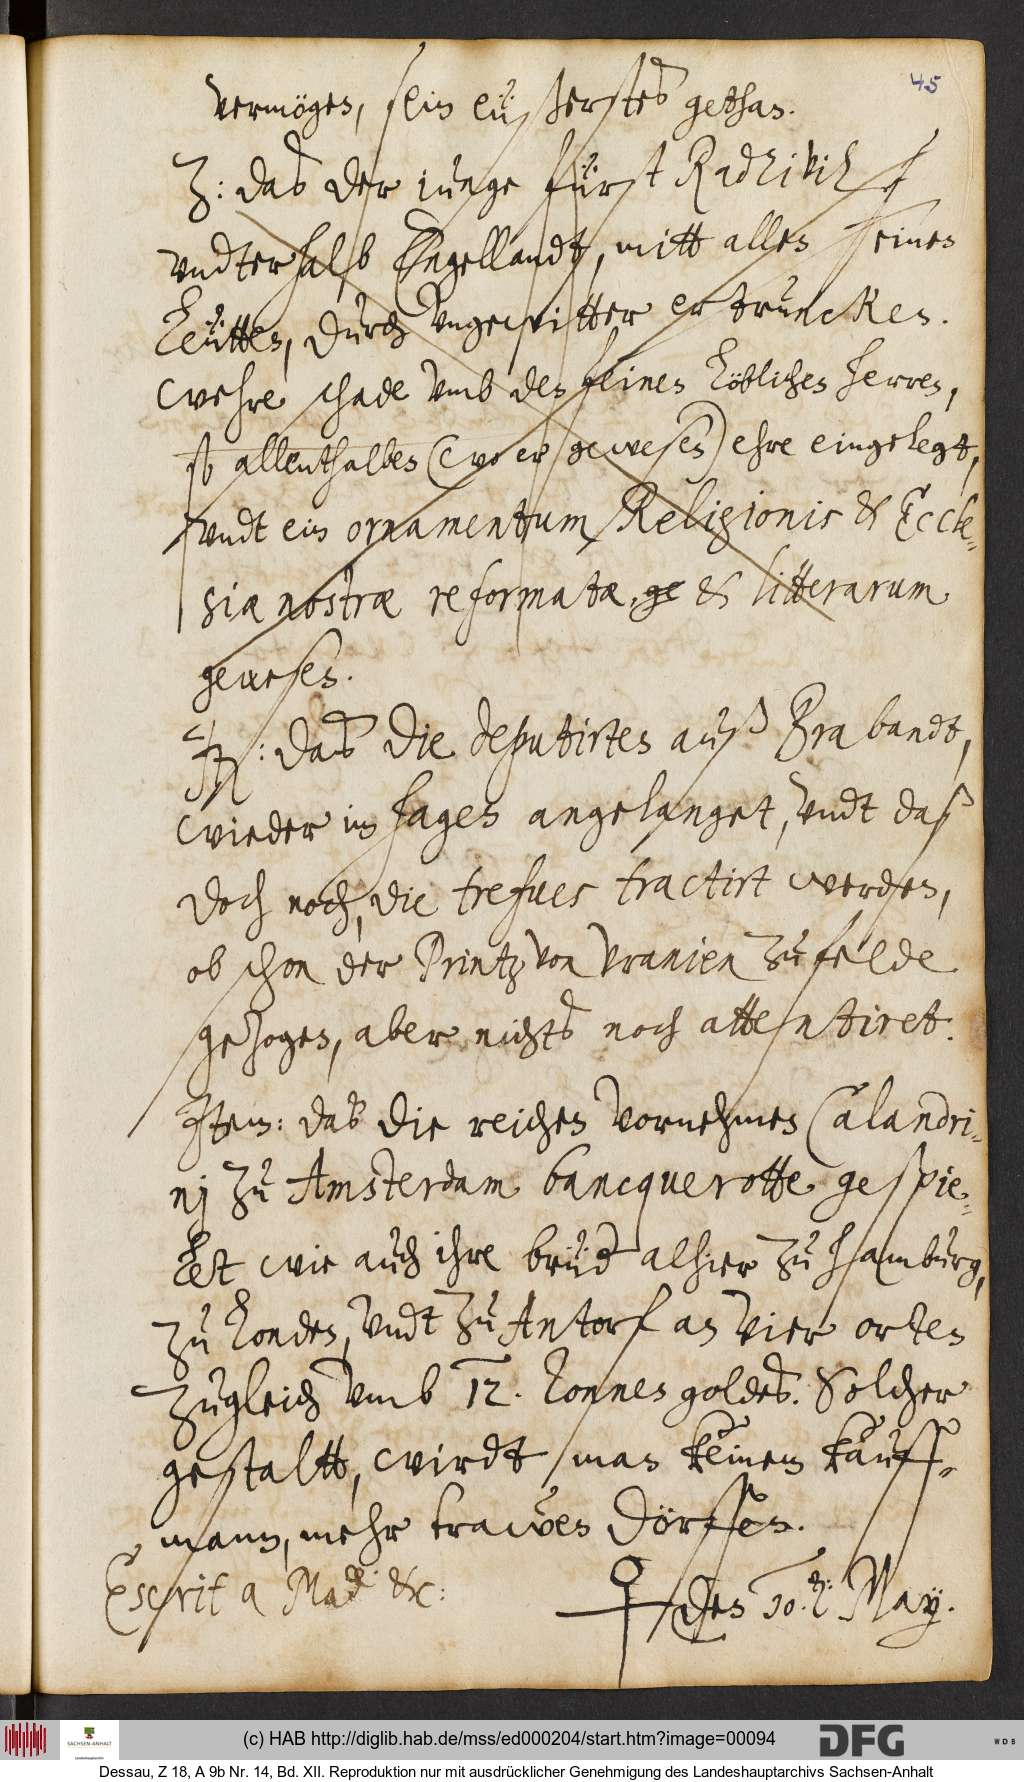 45
vermögen, sein eüßerstes gethan.
Z: das der iunge fürst Radzivil
undterhalb Engellandt, mitt allen seinen
Leütten, durch ungewitter ertruncken.
wehre schade umb den feinen löblichen herren,
so allenthalben (wo er gewesen) ehre eingelegt,
undt ein ornamentum Religionis & Eccle-
siæ nostræ reformatæ, ge & litterarum
gewesen.
Z: das die deputirten auß Brabandt,
wieder im Hagen angelanget, undt daß
doch noch, die trefues tractirt werden,
ob schon der Printz von Uranien zu felde
gezogen, aber nichts noch attentiret.
Item: das die reichen vornehmen Calandri-
nj zu Amsterdam bancquerotte gespie-
let wie auch ihre brüd alhier zu hamburg,
zu Londen, undt zu Antorf an vier orten
zugleich umb 12. tonnen goldes. Solcher
gestaltt, wirdt man keinem kauff-
mann, mehr trawen dörffen.
Escrit a Mad. &c:
den 10. May.
(c) HAB http://diglib.hab.de/mss/ed000204/start.htm?image=00094
SACHSEN-ANHALT
DFG
WDB
Dessau, Z 18, A 9b Nr. 14, Bd. XII. Reproduktion nur mit ausdrücklicher Genehmigung des Landeshauptarchivs Sachsen-Anhalt